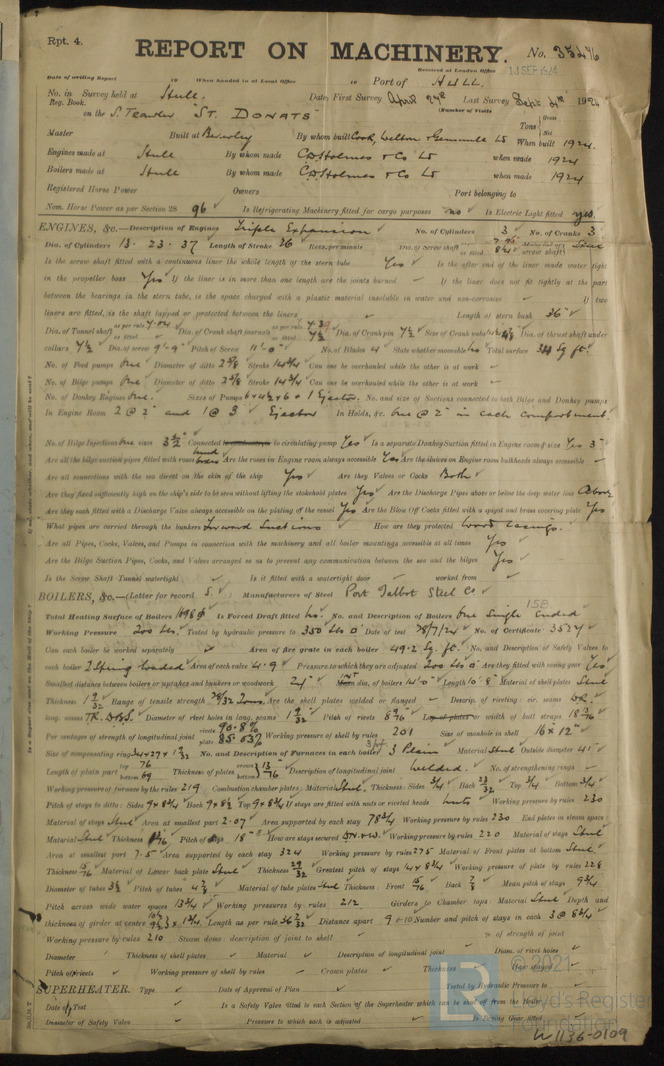 Rpt. 4.
REPORT ON MACHINERY. No. 35246
Received at London Office
Date of writing Report 19 When handed in at Local Office 19 Port of HULL.
No. in Survey held at Hull. Date, First Survey April 29th Last Survey Sept. 4th 1924
Reg. Book. (Number of Visits
on the S. Trawler ST. DONATS
Tons Gross Net
Master Built at Beverley By whom built Cook, Welton & Gemmell Ld When built 1924.
Engines made at Hull By whom made C.D. Holmes & Co Ld when made 1924
Boilers made at Hull By whom made C.D. Holmes & Co Ld when made 1924
Registered Horse Power Owners Port belonging to
Nom. Horse Power as per Section 28 96 Is Refrigerating Machinery fitted for cargo purposes no Is Electric Light fitted yes.
ENGINES, &c.—Description of Engines Triple Expansion No. of Cylinders 3 No. of Cranks 3
Dia. of Cylinders 13. 23. 37 Length of Stroke 26 Revs. per minute Dia. of Screw shaft
Is the screw shaft fitted with a continuous liner the whole length of the stern tube Yes Is the after end of the liner made water tight
in the propeller boss Yes If the liner is in more than one length are the joints burned If the liner does not fit tightly at the part
between the bearings in the stern tube, is the space charged with a plastic material insoluble in water and non-corrosive If two
liners are fitted, is the shaft lapped or protected between the liners Length of stern bush 36"
Dia. of Tunnel shaft as per rule 7.04 as fitted Dia. of Crank shaft journals as per rule 7.39 as fitted 7½ Dia. of Crank pin 7½ Size of Crank webs Dia. of thrust shaft under
collars 7½ Dia. of screw 9'-9" Pitch of Screw 11'-0" No. of Blades 4 State whether moveable No Total surface Sq ft.
No. of Feed pumps One Diameter of ditto 2 5/8 Stroke 14 3/4 Can one be overhauled while the other is at work
No. of Bilge pumps One Diameter of ditto 2 5/8 Stroke 14 3/4 Can one be overhauled while the other is at work
No. of Donkey Engines One. Sizes of Pumps 6 × 4½ × 6 + 1 Ejector. No. and size of Suctions connected to both Bilge and Donkey pumps
In Engine Room 2 @ 2" and 1 @ 3 Ejector In Holds, &c. One @ 2" in each compartment
No. of Bilge Injections One sizes 3½" Connected to circulating pump Yes Is a separate Donkey Suction fitted in Engine room & size Yes 3"
Are all the bilge suction pipes fitted with roses Are the roses in Engine room always accessible Yes Are the sluices on Engine room bulkheads always accessible
Are all connections with the sea direct on the skin of the ship Yes Are they Valves or Cocks Both
Are they fixed sufficiently high on the ship's side to be seen without lifting the stokehold plates Yes Are the Discharge Pipes above or below the deep water line Above
Are they each fitted with a Discharge Valve always accessible on the plating of the vessel Yes Are the Blow Off Cocks fitted with a spigot and brass covering plate Yes
What pipes are carried through the bunkers Forward Suctions How are they protected Wood casings.
Are all Pipes, Cocks, Valves, and Pumps in connection with the machinery and all boiler mountings accessible at all times Yes
Are the Bilge Suction Pipes, Cocks, and Valves arranged so as to prevent any communication between the sea and the bilges Yes
Is the Screw Shaft Tunnel watertight Is it fitted with a watertight door worked from
BOILERS, &c.—(Letter for record S.) Manufacturers of Steel Port Talbot Steel Co
Total Heating Surface of Boilers Is Forced Draft fitted No. No. and Description of Boilers One Single Ended
Working Pressure 200 Lbs. Tested by hydraulic pressure to 350 Lbs Date of test 28/7/24 No. of Certificate 3527
Can each boiler be worked separately Area of fire grate in each boiler 49.2 Sq. ft. No. and Description of Safety Valves to
each boiler 2 Spring loaded Area of each valve 4.9 Pressure to which they are adjusted 200 Lbs Are they fitted with easing gear Yes
Smallest distance between boilers or uptakes and bunkers or woodwork 24" dia. of boilers 14'-0" Length 10'-8" Material of shell plates Steel
Thickness 1 9/32 Range of tensile strength 28/32 Tons. Are the shell plates welded or flanged Descrip. of riveting: cir. seams D.R.
long. seams TR. D.B.S. Diameter of rivet holes in long. seams 1 9/32 Pitch of rivets 8 9/16 Lap of plates or width of butt straps
Per centages of strength of longitudinal joint rivets 90.8% plate 85.03% Working pressure of shell by rules 201 Size of manhole in shell 16 × 12"
Size of compensating ring 34 × 27 × 1 9/32 No. and Description of Furnaces in each boiler 3 Plain Material Steel Outside diameter 41"
Length of plain part top 76 bottom 69 Thickness of plates crown bottom 13/16 Description of longitudinal joint Welded. No. of strengthening rings
Working pressure of furnace by the rules 219 Combustion chamber plates: Material Steel. Thickness: Sides 3/4 Back 23/32 Top 3/4 Bottom 3/4
Pitch of stays to ditto: Sides 9 × 8 3/4 Back 9 × 8½ Top 9 × 8 3/4 If stays are fitted with nuts or riveted heads Nuts Working pressure by rules 230
Material of stays Steel Area at smallest part 2.07 Area supported by each stay 78 3/4 Working pressure by rules 230 End plates in steam space:
Material Steel Thickness Pitch of stays 18" How are stays secured D.N. & W. Working pressure by rules 220 Material of stays Steel
Area at smallest part 7.5 Area supported by each stay 324 Working pressure by rules 275 Material of Front plates at bottom Steel
Thickness 15/16 Material of Lower back plate Steel Thickness 29/32 Greatest pitch of stays Working pressure of plate by rules 228
Diameter of tubes 3½ Pitch of tubes 4 7/8 Material of tube plates Steel Thickness: Front 15/16 Back 7/8 Mean pitch of stays 9 3/4
Pitch across wide water spaces 13 3/4 Working pressures by rules 212 Girders to Chamber tops: Material Steel Depth and
thickness of girder at centre Length as per rule 36 7/32 Distance apart Number and pitch of stays in each 3 @ 8 3/4
Working pressure by rules 210 Steam dome: description of joint to shell % of strength of joint
Diameter Thickness of shell plates Material Description of longitudinal joint Diam. of rivet holes
Pitch of rivets Working pressure of shell by rules Crown plates Thickness How stayed
SUPERHEATER. Type Date of Approval of Plan Tested by Hydraulic Pressure to
Date of Test Is a Safety Valve fitted to each Section of the Superheater which can be shut off from the Boiler
Diameter of Safety Valve Pressure to which each is adjusted Is Easing Gear fitted
© 2021
Lloyd's Register
Foundation
W1136-0109